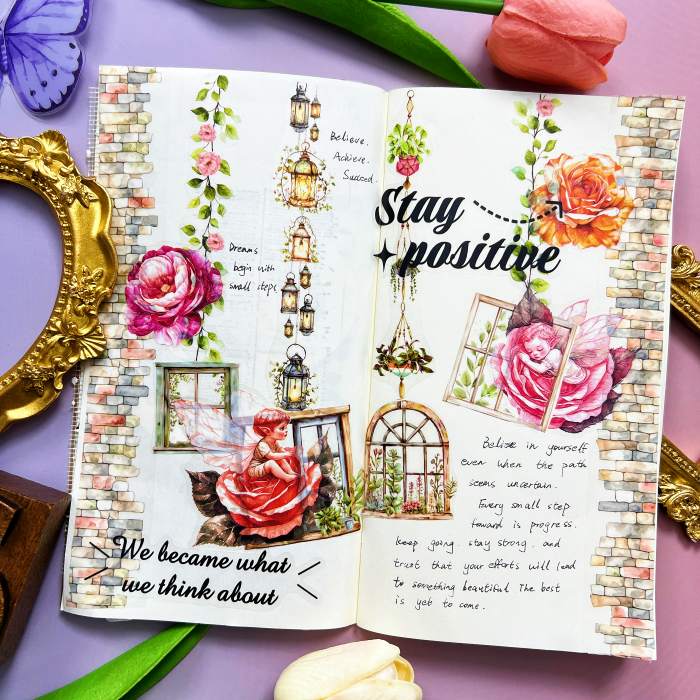 Believe.
Achieve.
Succeed.
Dreams
begin with
small steps
We became what
we think about
Stay
positive
Believe in yourself
even when the path
seems uncertain.
Every small step
forward is progress.
Keep going, stay strong, and
trust that your efforts will lead
to something beautiful. The best
is yet to come.